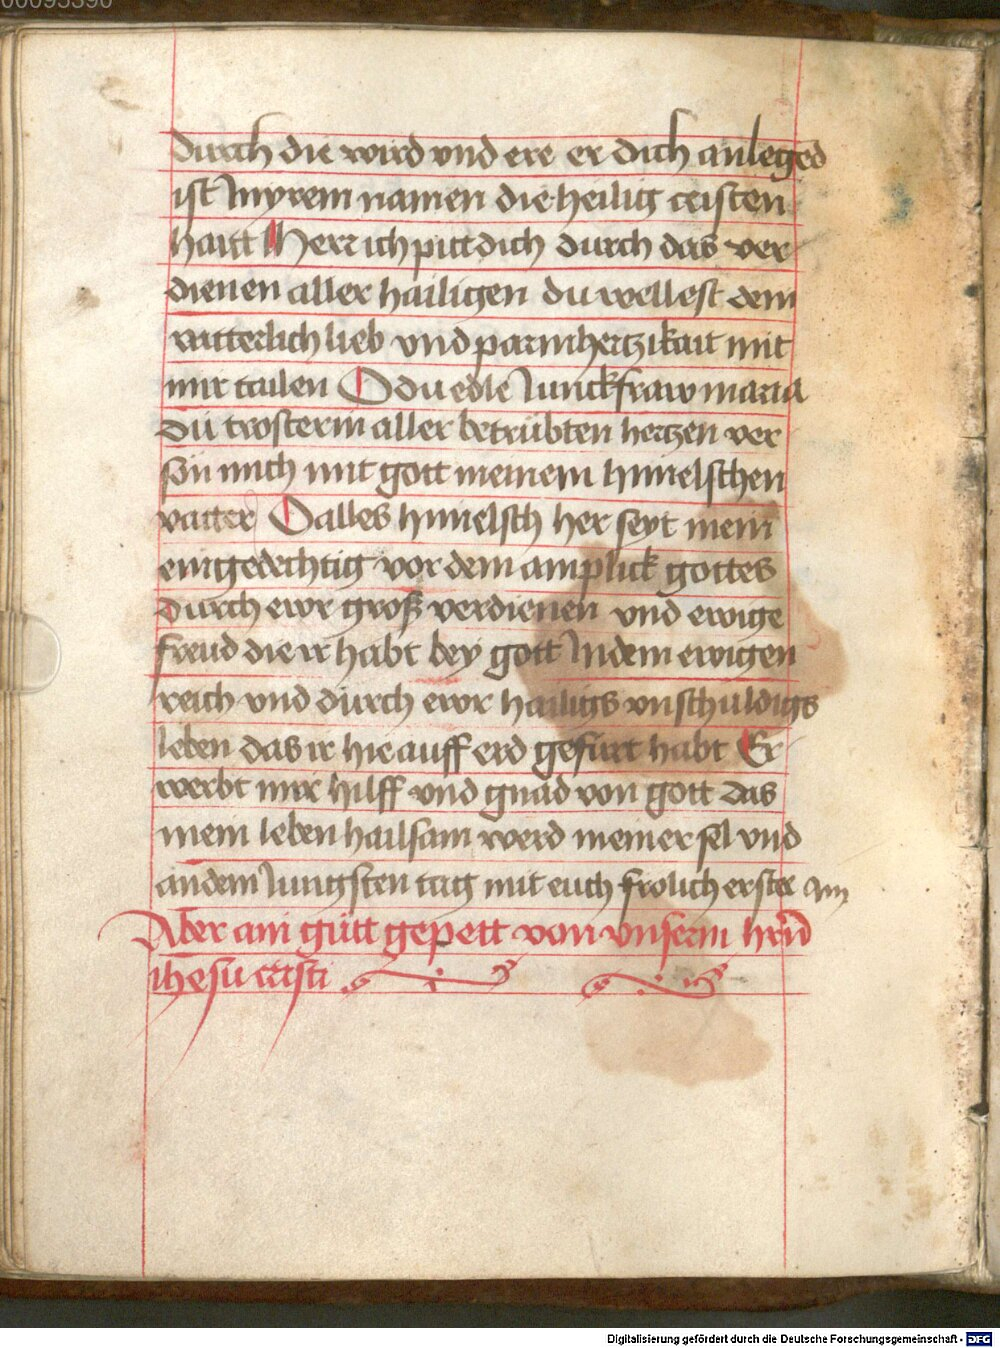 00095390
durch die wird vnd ere er dich anleged
ist Jn yrem namen die heilig cristen
haitt Herr ich pitt dich durch das ver
dienen aller hailigen du wellest dein
vatterlich lieb vnd parmhertzikait mit
mir tailen O du edle Junckfraw maria
du trosterin aller betrübten hertzen ver
sün mich mit gott meinem himelschen
vatter O alles himelsch her seyt mein
eingedechtig vor dem anplick gottes
durch ewr groß verdienen vnd ewige
freud die ir habt bey gott Jn dem ewigen
reich vnd durch ewr hailigs vnschuldigs
leben das ir hie auff erd gefürt habt Er
werbt mir hilff vnd gnad von gott das
mein leben hailsam werd meiner sel vnd
an dem Jungsten tag mit euch frolich erstee Am
Aber ain gütt gepett von vnserm hrn
ihesu cristi
Digitalisierung gefördert durch die Deutsche Forschungsgemeinschaft - DFG